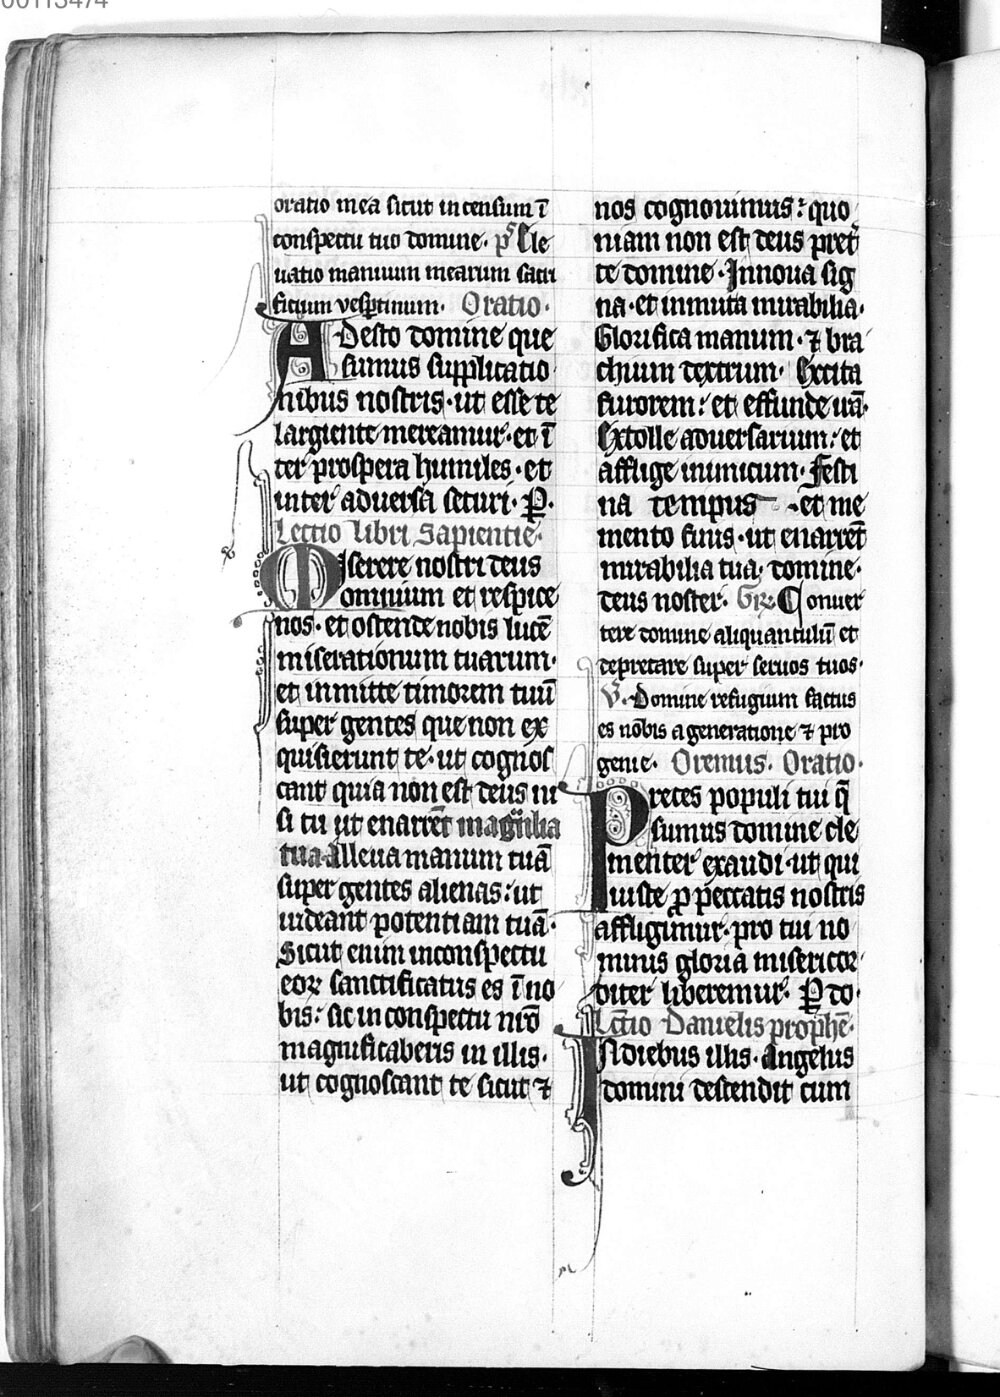 00113474
oratio mea sicut incensum ī
conspectu tuo domine. ps Ele
uatio manuum mearum sacri
ficium vesptinum. Oratio.
Adesto domine que
sumus supplicatio
nibus nostris. ut esse te
largiente mereamur. et ī
ter prospera humiles. et
inter aduersa securi. P.
Lectio libri Sapientie.
Miserere nostri deus
omnium et respice
nos. et ostende nobis lucē
miserationum tuarum.
et inmitte timorem tuū
super gentes que non ex
quisierunt te. ut cognos
cant quia non est deus ni
si tu ut enarrēt magnilia
tua. Alleua manum tuā
super gentes alienas: ut
uideant potentiam tuā.
Sicut enim inconspectu
eoꝝ sanctificatus es ī no
bis: sic in conspectu nrō
magnificaberis in illis.
ut cognoscant te sicut ⁊
nos cognouimus: quo
niam non est deus pret̄
te domine. Innoua sig
na. et inmuta mirabilia.
Glorifica manum. ⁊ bra
chium dextrum. Excita
furorem: et effunde irā.
Extolle aduersarium: et
afflige inimicum. Festi
na tempus et me
mento finis. ut enarrēt
mirabilia tua, domine.
deus noster. Gr̄. Conuer
tere domine aliquantulū et
deprecare super seruos tuos.
V. Domine refugium factus
es nobis a generatione ⁊ pro
genie. Oremus. Oratio.
Preces populi tui q̄
sumus domine cle
menter exaudi. ut qui
iuste ꝓ peccatis nostris
affligimur. pro tui no
minis gloria misericor
diter liberemur. P do.
Lctio Danielis prophē.
In diebus illis. Angelus
domini descendit cum